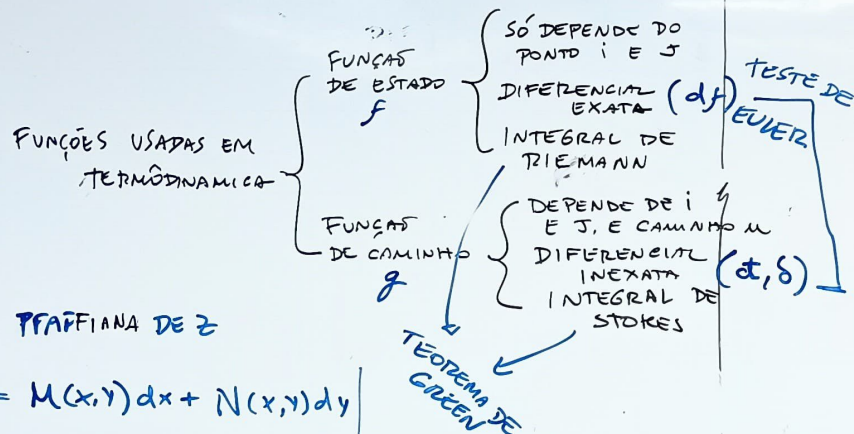 FUNÇÕES USADAS EM
TERMÔDINAMICA
FUNÇÃO
DE ESTADO
f
SÓ DEPENDE DO
PONTO i E J
DIFERENCIAL
EXATA (df)
INTEGRAL DE
RIEMANN
TESTE DE
EULER
FUNÇÃO
DE CAMINHO
g
DEPENDE DE i
E J, E CAMINHO
DIFERENCIAL
INEXATA (đ, δ)
INTEGRAL DE
STOKES
TEOREMA DE
GREEN
PFAFFIANA DE Z
= M(x,y)dx + N(x,y)dy